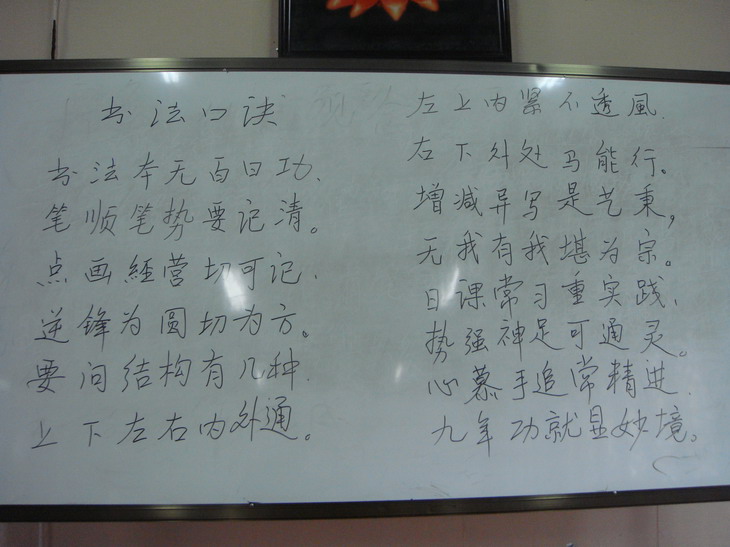 书法口诀
书法本无百日功,
笔顺笔势要记清。
点画經营切可记,
逆锋为圆切为方。
要问结构有几种,
上下左右内外通。
左上内紧不透風,
右下外处马能行。
增減异写是艺秉,
无我有我堪为宗。
日课常习重实践,
势强神足可通灵。
心慕手追常精进,
九年功就显妙境。